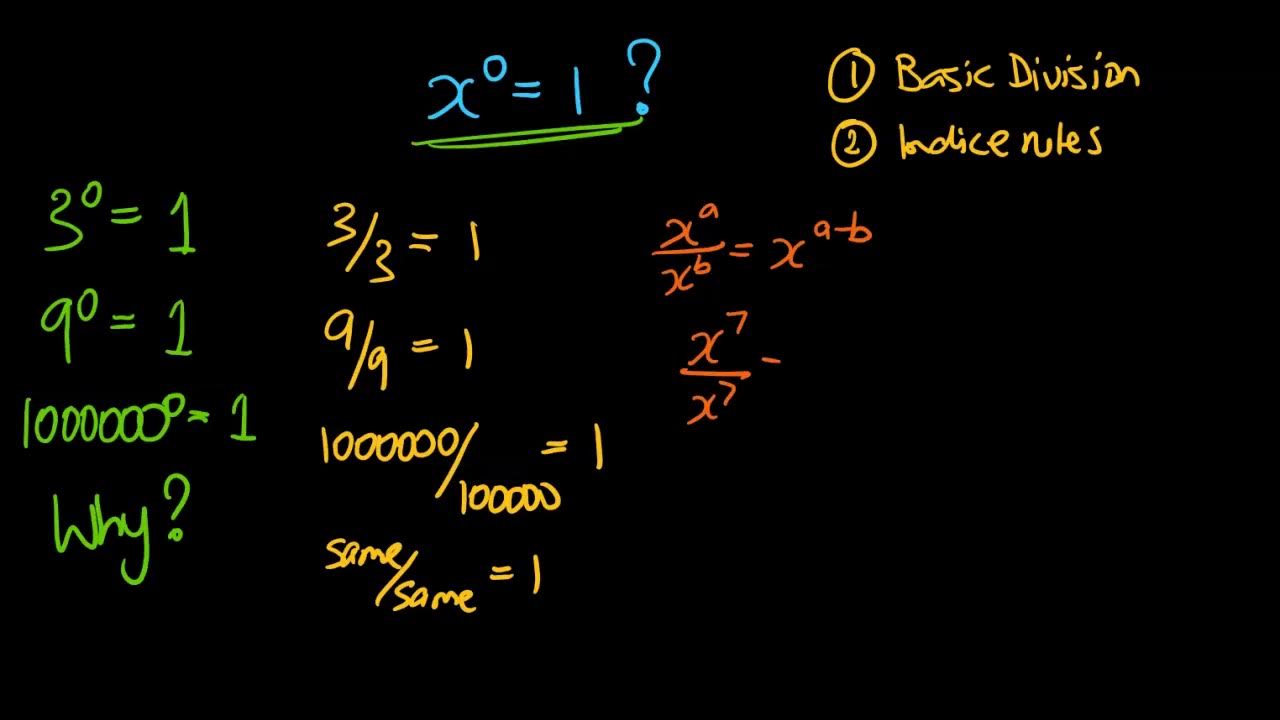 x⁰ = 1 ?
① Basic Division
② Indice rules
3⁰ = 1
9⁰ = 1
1000000⁰ = 1
Why?
3/3 = 1
9/9 = 1
1000000/100000 = 1
same/same = 1
xᵃ/xᵇ = xᵃ⁻ᵇ
x⁷/x⁷ -